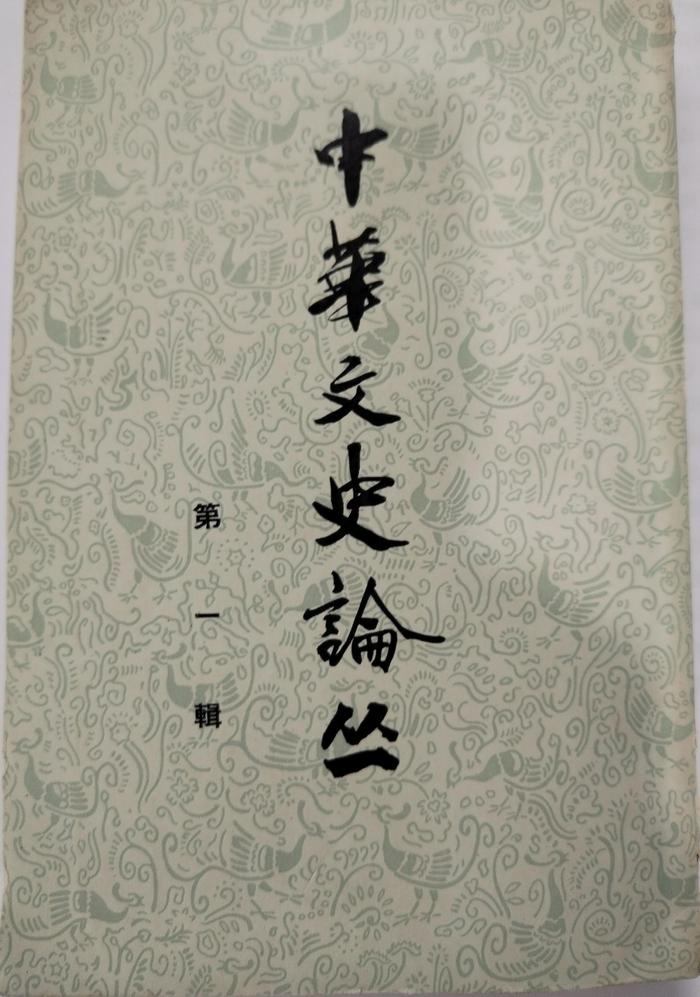 中華文史論丛
第一輯